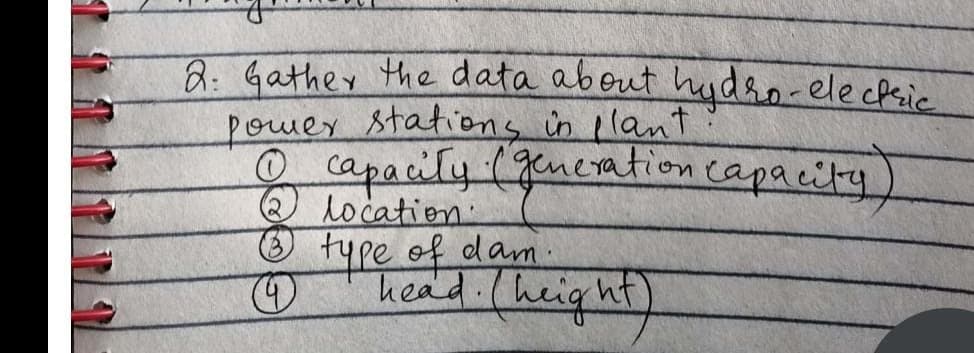 Q: Gather the data about hydro-electric
power stations in plant.
① capacity. (generation capacity)
② location.
③ type of dam.
④ head. (height)